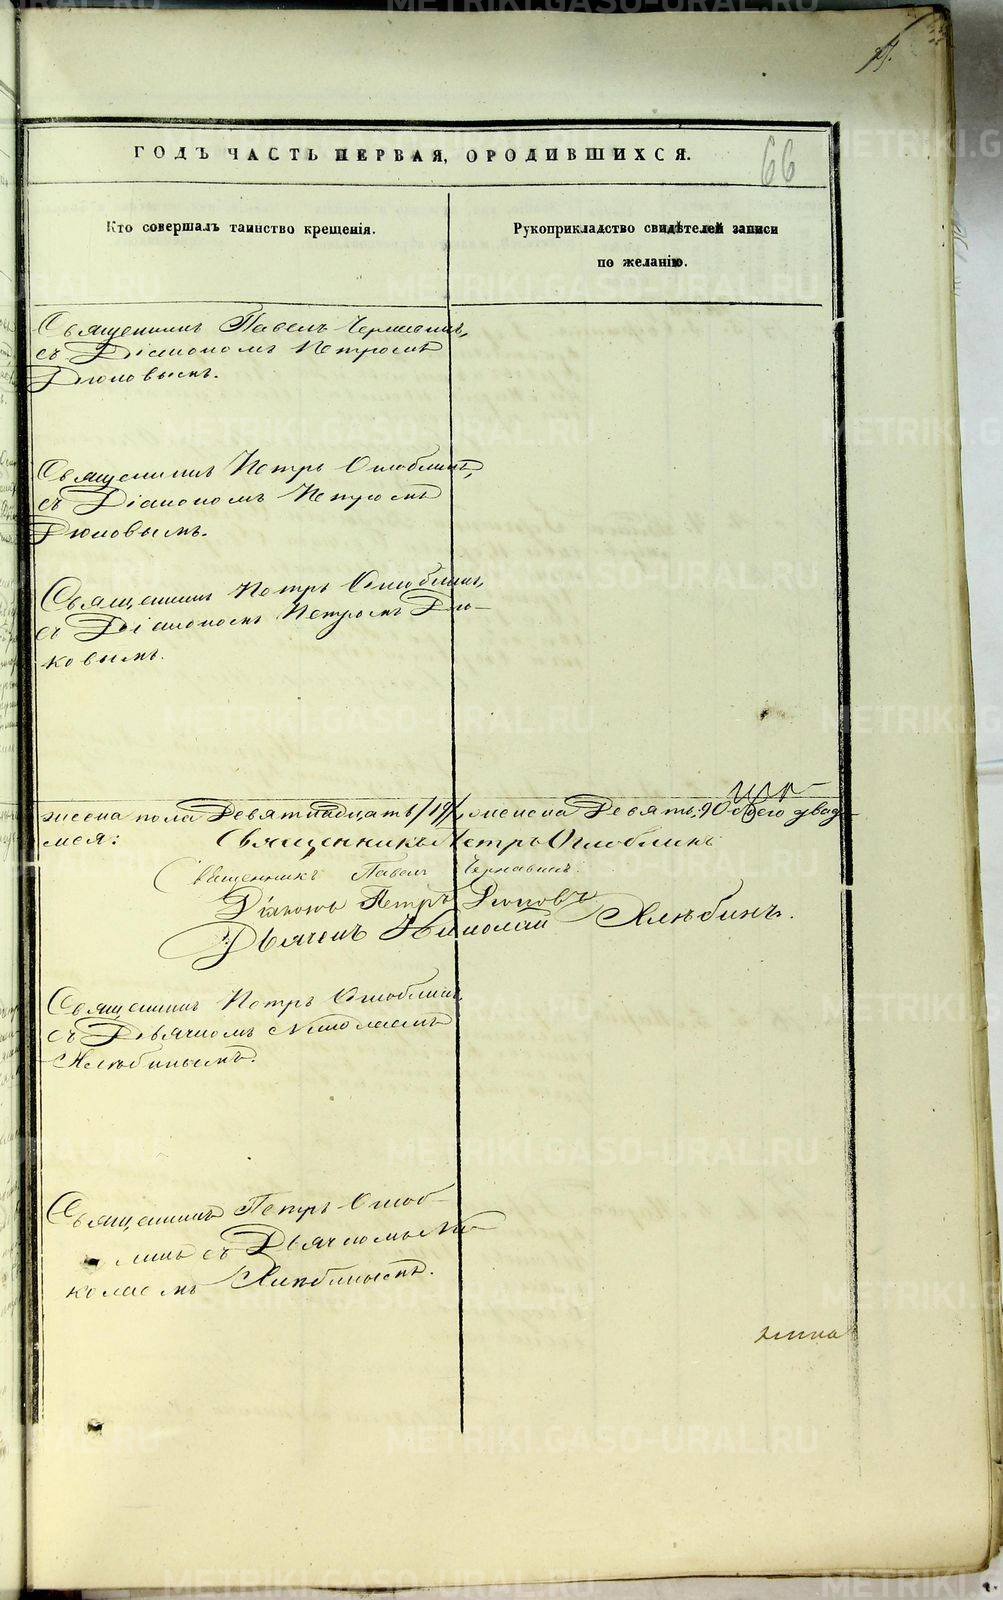 ГОДЪ ЧАСТЬ ПЕРВАЯ, ОРОДИВШИХСЯ.
66
Кто совершалъ таинство крещенія.
Рукоприкладство свидѣтелей записи
по желанію.
Священникъ Павелъ Чернавинъ,
съ Діакономъ Петромъ
Дюковымъ.
Священникъ Петръ Оглоблинъ,
съ Діакономъ Петромъ
Дюковымъ.
Священникъ Петръ Оглоблинъ,
съ Діакономъ Петромъ Дю-
ковымъ.
пола Девятнадцать /19/, женска Девять, 9 Обоего двад-
Священникъ Петръ Оглоблинъ
Священникъ Павелъ Чернавинъ.
Діаконъ Петръ Дюковъ
Дьячекъ Николай Хлѣбинъ.
Священникъ Петръ Оглоблинъ,
съ Дьячкомъ Николаемъ
Хлѣбинымъ.
Священникъ Петръ Оглоб-
линъ съ Дьячкомъ Ни-
колаемъ Хлѣбинымъ.
METRIKI.GASO-URAL.RU